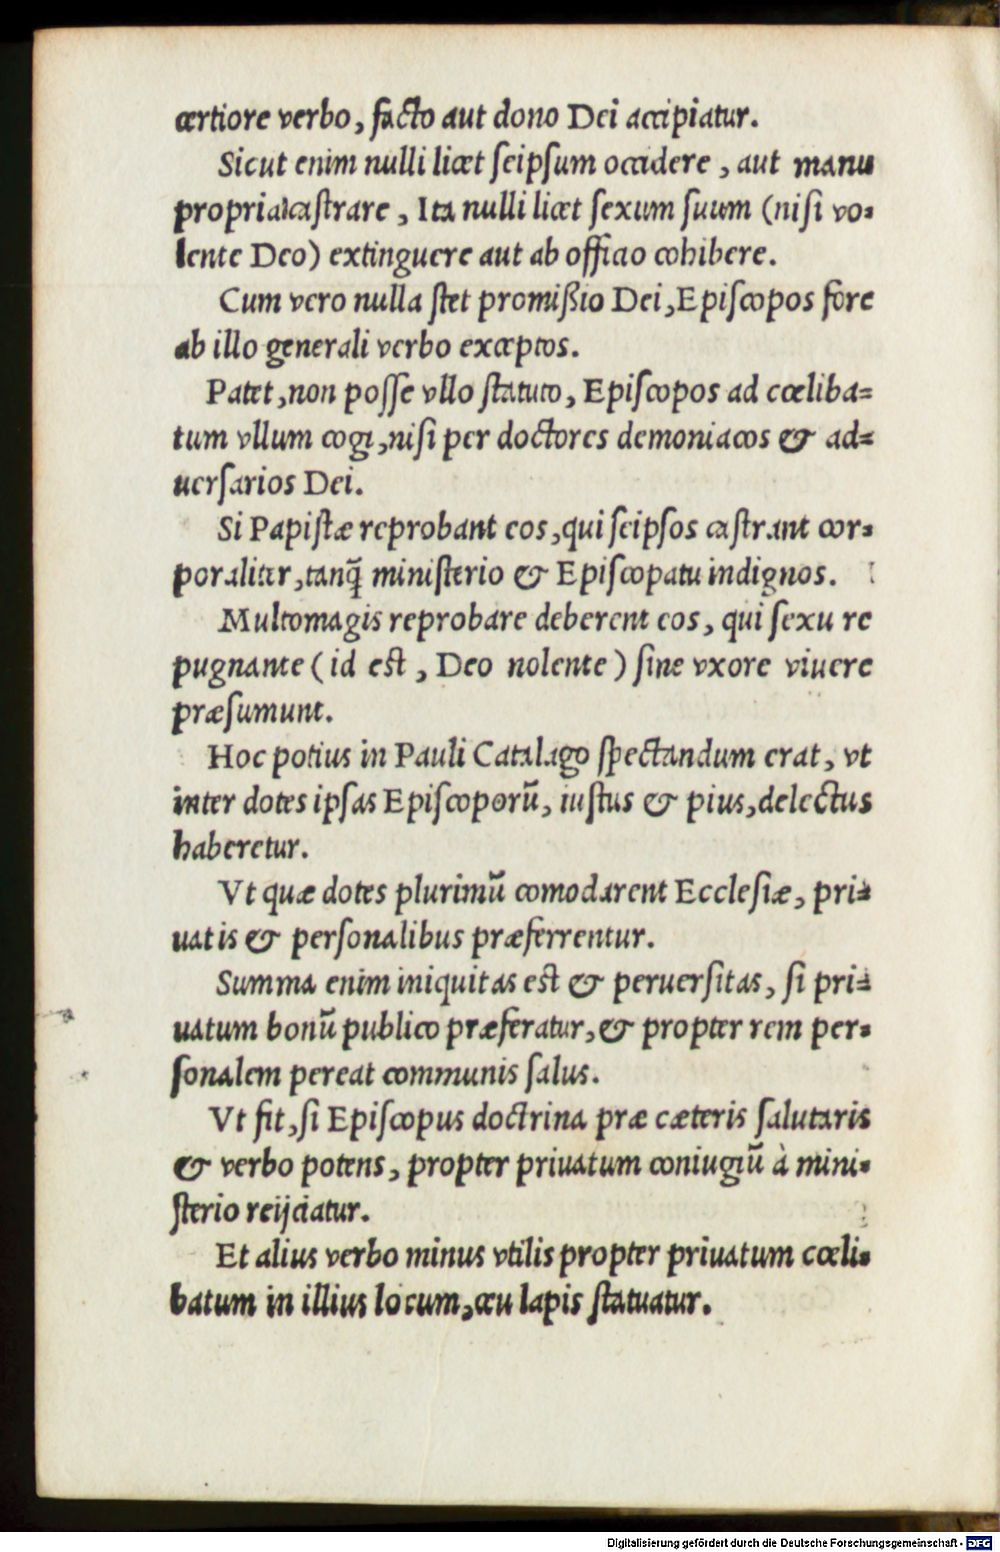 certiore verbo, facto aut dono Dei accipiatur.
Sicut enim nulli licet ſeipſum occidere, aut manu
propria caſtrare, Ita nulli licet ſexum ſuum (niſi vo-
lente Deo) extinguere aut ab officio cohibere.
Cum vero nulla ſtet promiſſio Dei, Epiſcopos fore
ab illo generali verbo exceptos.
Patet, non poſſe vllo ſtatuto, Epiſcopos ad cœliba-
tum vllum cogi, niſi per doctores demoniacos & ad-
uerſarios Dei.
Si Papiſtæ reprobant eos, qui ſeipſos caſtrant cor-
poraliter, tanꝙ̃ miniſterio & Epiſcopatu indignos.
Multomagis reprobare deberent eos, qui ſexu re
pugnante (id eſt, Deo nolente) ſine vxore viuere
præſumunt.
Hoc potius in Pauli Catalago ſpectandum erat, vt
inter dotes ipſas Epiſcoporũ, iuſtus & pius, delectus
haberetur.
Vt quæ dotes plurimũ comodarent Eccleſiæ, pri-
uatis & perſonalibus præferrentur.
Summa enim iniquitas eſt & peruerſitas, ſi pri-
uatum bonũ publico præferatur, & propter rem per-
ſonalem pereat communis ſalus.
Vt fit, ſi Epiſcopus doctrina præ cæteris ſalutaris
& verbo potens, propter priuatum coniugiũ à mini-
ſterio reijciatur.
Et alius verbo minus vtilis propter priuatum cœli-
batum in illius locum, ceu lapis ſtatuatur.
Digitalisierung gefördert durch die Deutsche Forschungsgemeinschaft - DFG